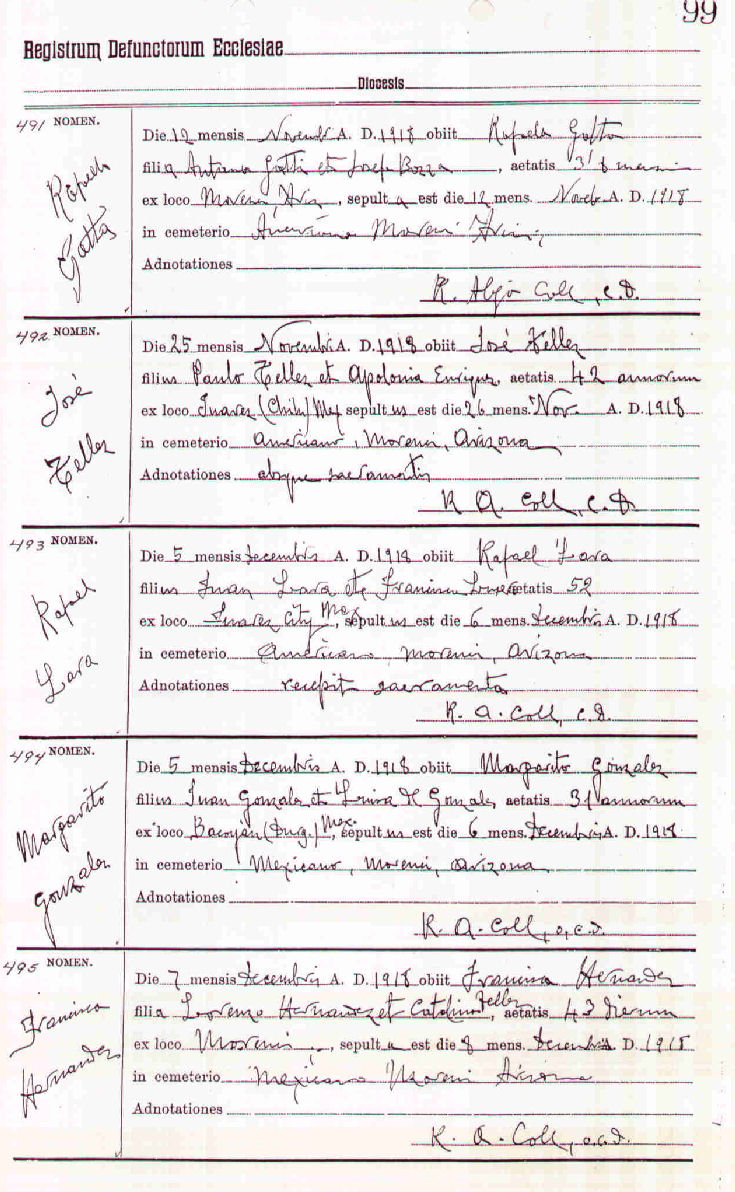 99
Registrum Defunctorum Ecclesiae
Diocesis
491 NOMEN.
Rafaela
Gotta
Die 12 mensis Novemb A. D. 1918 obiit Rafaela Gotta
filia Antonio Gotti et Josefa, aetatis 3
ex loco Morenci Ariz, sepult a est die 12 mens. Novb A. D. 1918
in cemeterio Americano Morenci
Adnotationes
R. Aljo Coll, c.d.
492 NOMEN.
José
Tellez
Die 25 mensis Novembris A. D. 1918 obiit José Tellez
filius Paulo Tellez et Apolonia Enriquez, aetatis 42 annorum
ex loco Juarez (Chih) Mex sepult us est die 26 mens. Nov. A. D. 1918
in cemeterio Americano, Morenci, Arizona
Adnotationes absque sacramentis
R A. Coll, c.d.
493 NOMEN.
Rafael
Lara
Die 5 mensis Decembris A. D. 1918 obiit Rafael Lara
filius Juan Lara et Francisca aetatis 52
ex loco Juarez City Mex, sepult us est die 6 mens. Decembris A. D. 1918
in cemeterio Americano, Morenci, Arizona
Adnotationes recepit sacramenta
R. A. Coll, c.d.
494 NOMEN.
Margarito
Gonzalez
Die 5 mensis Decembris A. D. 1918 obiit Margarito Gonzalez
filius Juan Gonzalez et Luisa de Gonzalez, aetatis 31 annorum
ex loco (Durg.) Mex. sepult us est die 6 mens. Decembris A. D. 1918
in cemeterio Mexicano, Morenci, Arizona
Adnotationes
R. A. Coll, o.c.d.
495 NOMEN.
Francisca
Hernandez
Die 7 mensis Decembris A. D. 1918 obiit Francisca Hernandez
filia Lorenzo Hernandez et Catalina Tellez, aetatis 43 dierum
ex loco Morenci, sepult a est die 8 mens. Decembris D. 1918
in cemeterio Mexicano Morenci Arizona
Adnotationes
R. A. Coll, o.c.d.